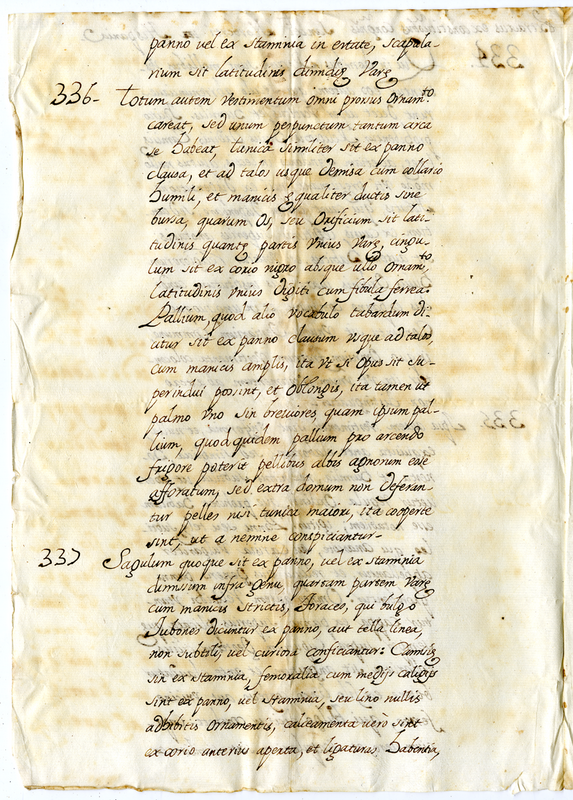 panno vel ex staminia in estate, scapula-
rium sit latitudinis dimidię Varę
336- Totum autem vestimentum omni prorsus ornam.to
careat, sed unum perpunctum tantum circa
se habeat, tunica similiter sit ex panno
clausa, et ad talos usque demisa cum collario
humili, et manicis ęqualiter ductis sine
bursa, quarum os, seu orificium sit lati-
tudinis quartę partis vnius Varę, cingu-
lum sit ex corio nigro absque ullo ornam.to,
latitudinis vnius digiti cum fibula ferrea:
Pallium, quod alio vocabulo tabardum di-
citur sit ex panno clausum vsque ad talos,
cum manicis amplis, ita vt si opus sit su-
perindui possint, et oblongis, ita tamen ut
palmo vno sin breuiores, quam ipsum pal-
lium, quod quidem pallium pro arcendo
frigore poterit pellibus albis agnorum esse
afforatum, sed extra domum non deferan-
tur pelles nisi tunica maiori, ita coopertę
sint, ut a nemine conspiciantur-
337 Sagulum quoque sit ex panno, vel ex staminia
dimissum infra genu, quartam partem Varę
cum manicis strictis, Thoraces, qui vulgo
Jubones dicuntur ex panno, aut tella linea,
non subtili, vel curiosa conficiantur: Camisię
sin ex staminia, femoralia cum medijs caligis
sint ex panno, vel staminia, seu lino nullis
adhibitis ornamentis, calceamenta uero sint
ex corio anterius aperta, et ligaturas habentia,